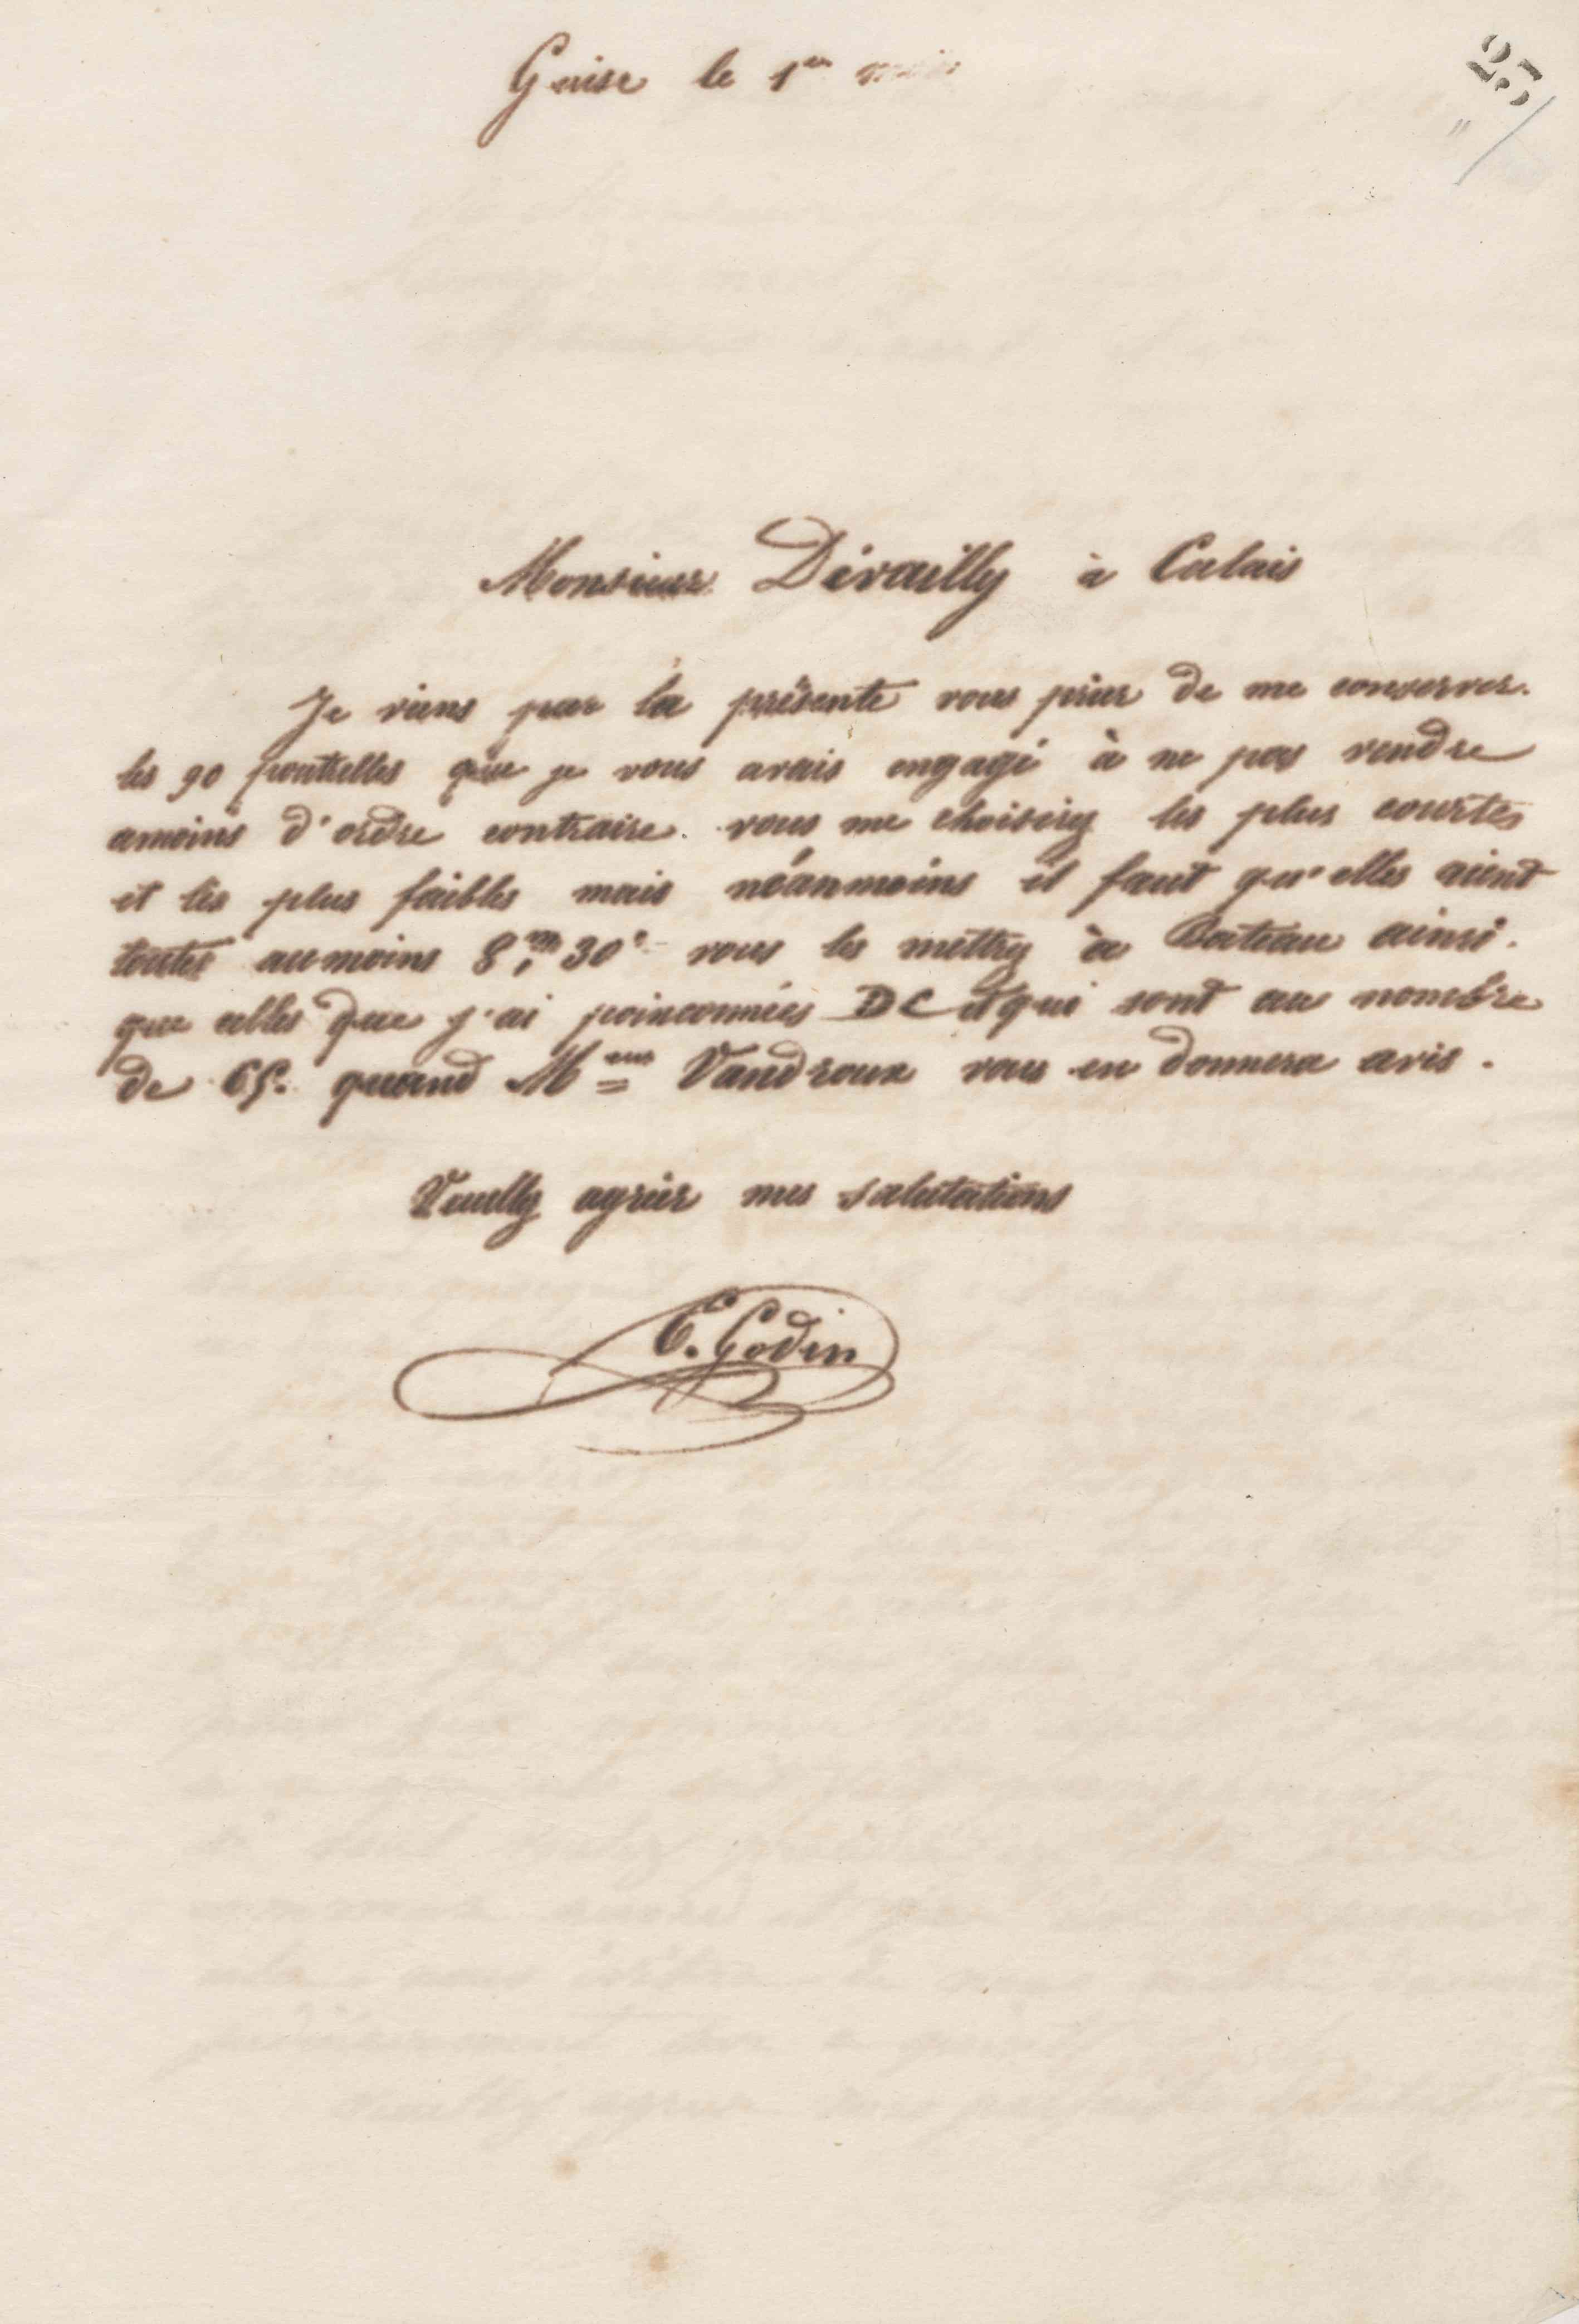 25
Guise le 1er
Monsieur Dérailly à Calais
Je viens par la présente vous prier de me conserver.
les 90 poutrelles que je vous avais engagé à ne pas vendre
amoins d'ordre contraire. vous me choisirez les plus courtes
et les plus faibles mais néanmoins il faut qu'elles aient
toutes aumoins 8,m30c vous les mettrez à Bateau ainsi.
que celles que j'ai poinconnées DC et qui sont au nombre
de 65. quand Meur Vandroux vous en donnera avis.
Veuillez agréer mes salutations
Godin